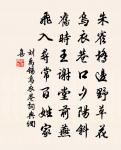 朱雀橋邊野草花
烏衣巷口夕陽斜
舊時王謝堂前燕
飛入尋常百姓家
劉禹錫烏衣巷詞典網